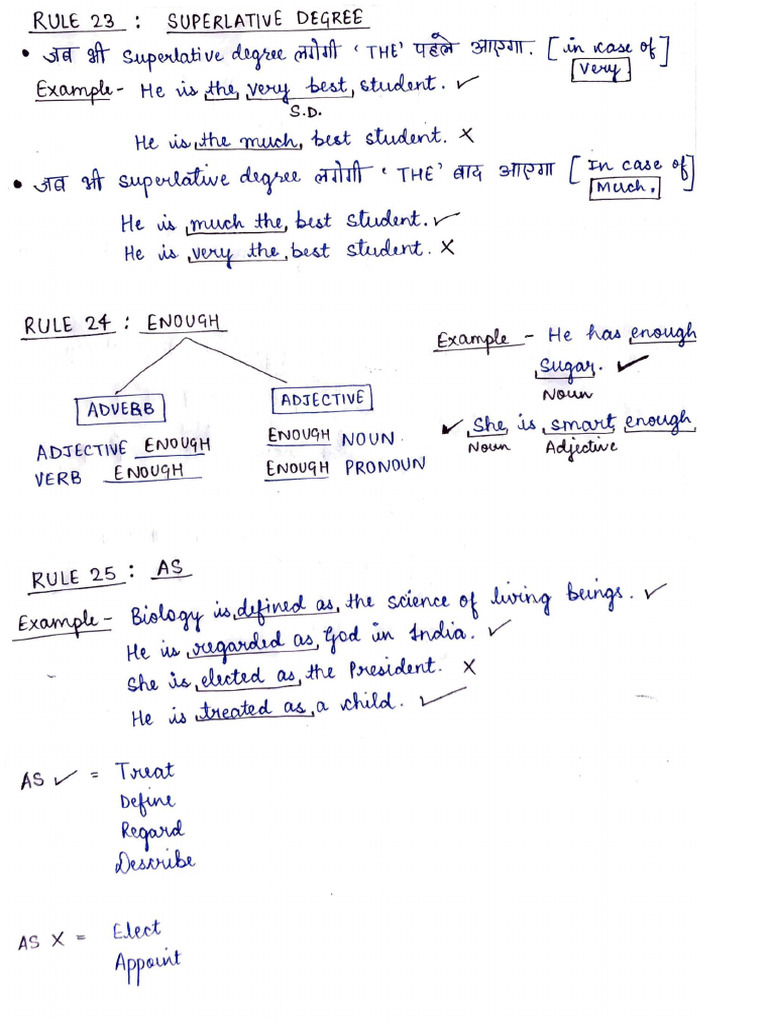 RULE 23 : SUPERLATIVE DEGREE
• जब भी Superlative degree लगेगी ' THE' पहले आएगा. [in case of]
Very
Example - He is the, very best, student. ✓
S.D.
He is, the much, best student. X
• जब भी Superlative degree लगेगी ' THE' बाद आएगा [In case of]
Much.
He is, much the, best student. ✓
He is, very the, best student. X
RULE 24 : ENOUGH
ADVERB
ADJECTIVE ENOUGH
VERB ENOUGH
ADJECTIVE
ENOUGH NOUN
ENOUGH PRONOUN
Example - He has enough
Sugar. ✓
Noun
✓ She is, smart, enough,
Noun Adjective
RULE 25 : AS
Example - Biology is, defined as, the science of living beings. ✓
He is, regarded as, God in India. ✓
She is, elected as, the President. X
He is treated as, a child. ✓
AS ✓ = Treat
Define
Regard
Describe
AS X = Elect
Appoint